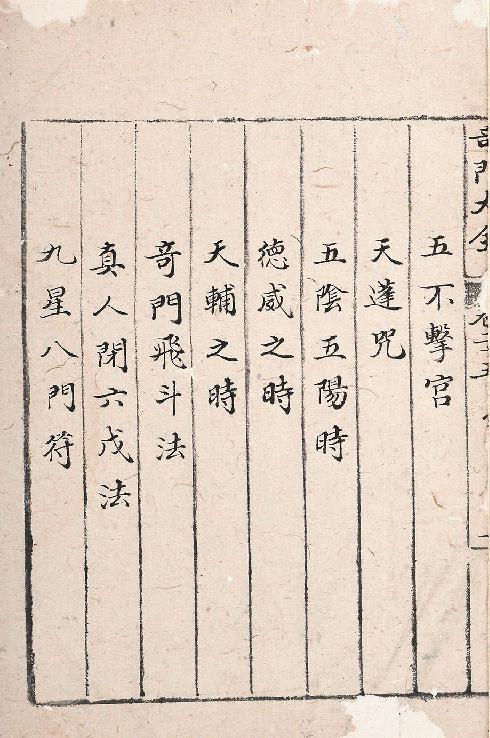 奇門大全
五不擊宮
天逢咒
五陰五陽時
德威之時
天輔之時
奇門飛斗法
真人閉六戊法
九星八門符